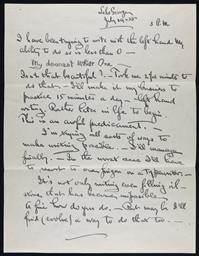 July 29 -
3 P.M.
I have been trying to write with the left hand. My
ability to do so is less than 0 —
My dearest White One —
Isn't that beautiful? — Took me 2½ minutes to
do that — I'll make it my business to
practice 15 minutes a day — left hand
writing. Rather late in life to begin.
This is an awful predicament. —
I'm trying all sorts of ways to
make writing possible. — I'll manage
finally. — In the worst case I'll have
to resort to on a Typewriter. —
It's not only writing even filling
that has become impossible.
A fine how do you do. — But maybe I'll
find (evolve) a way to do that too. —